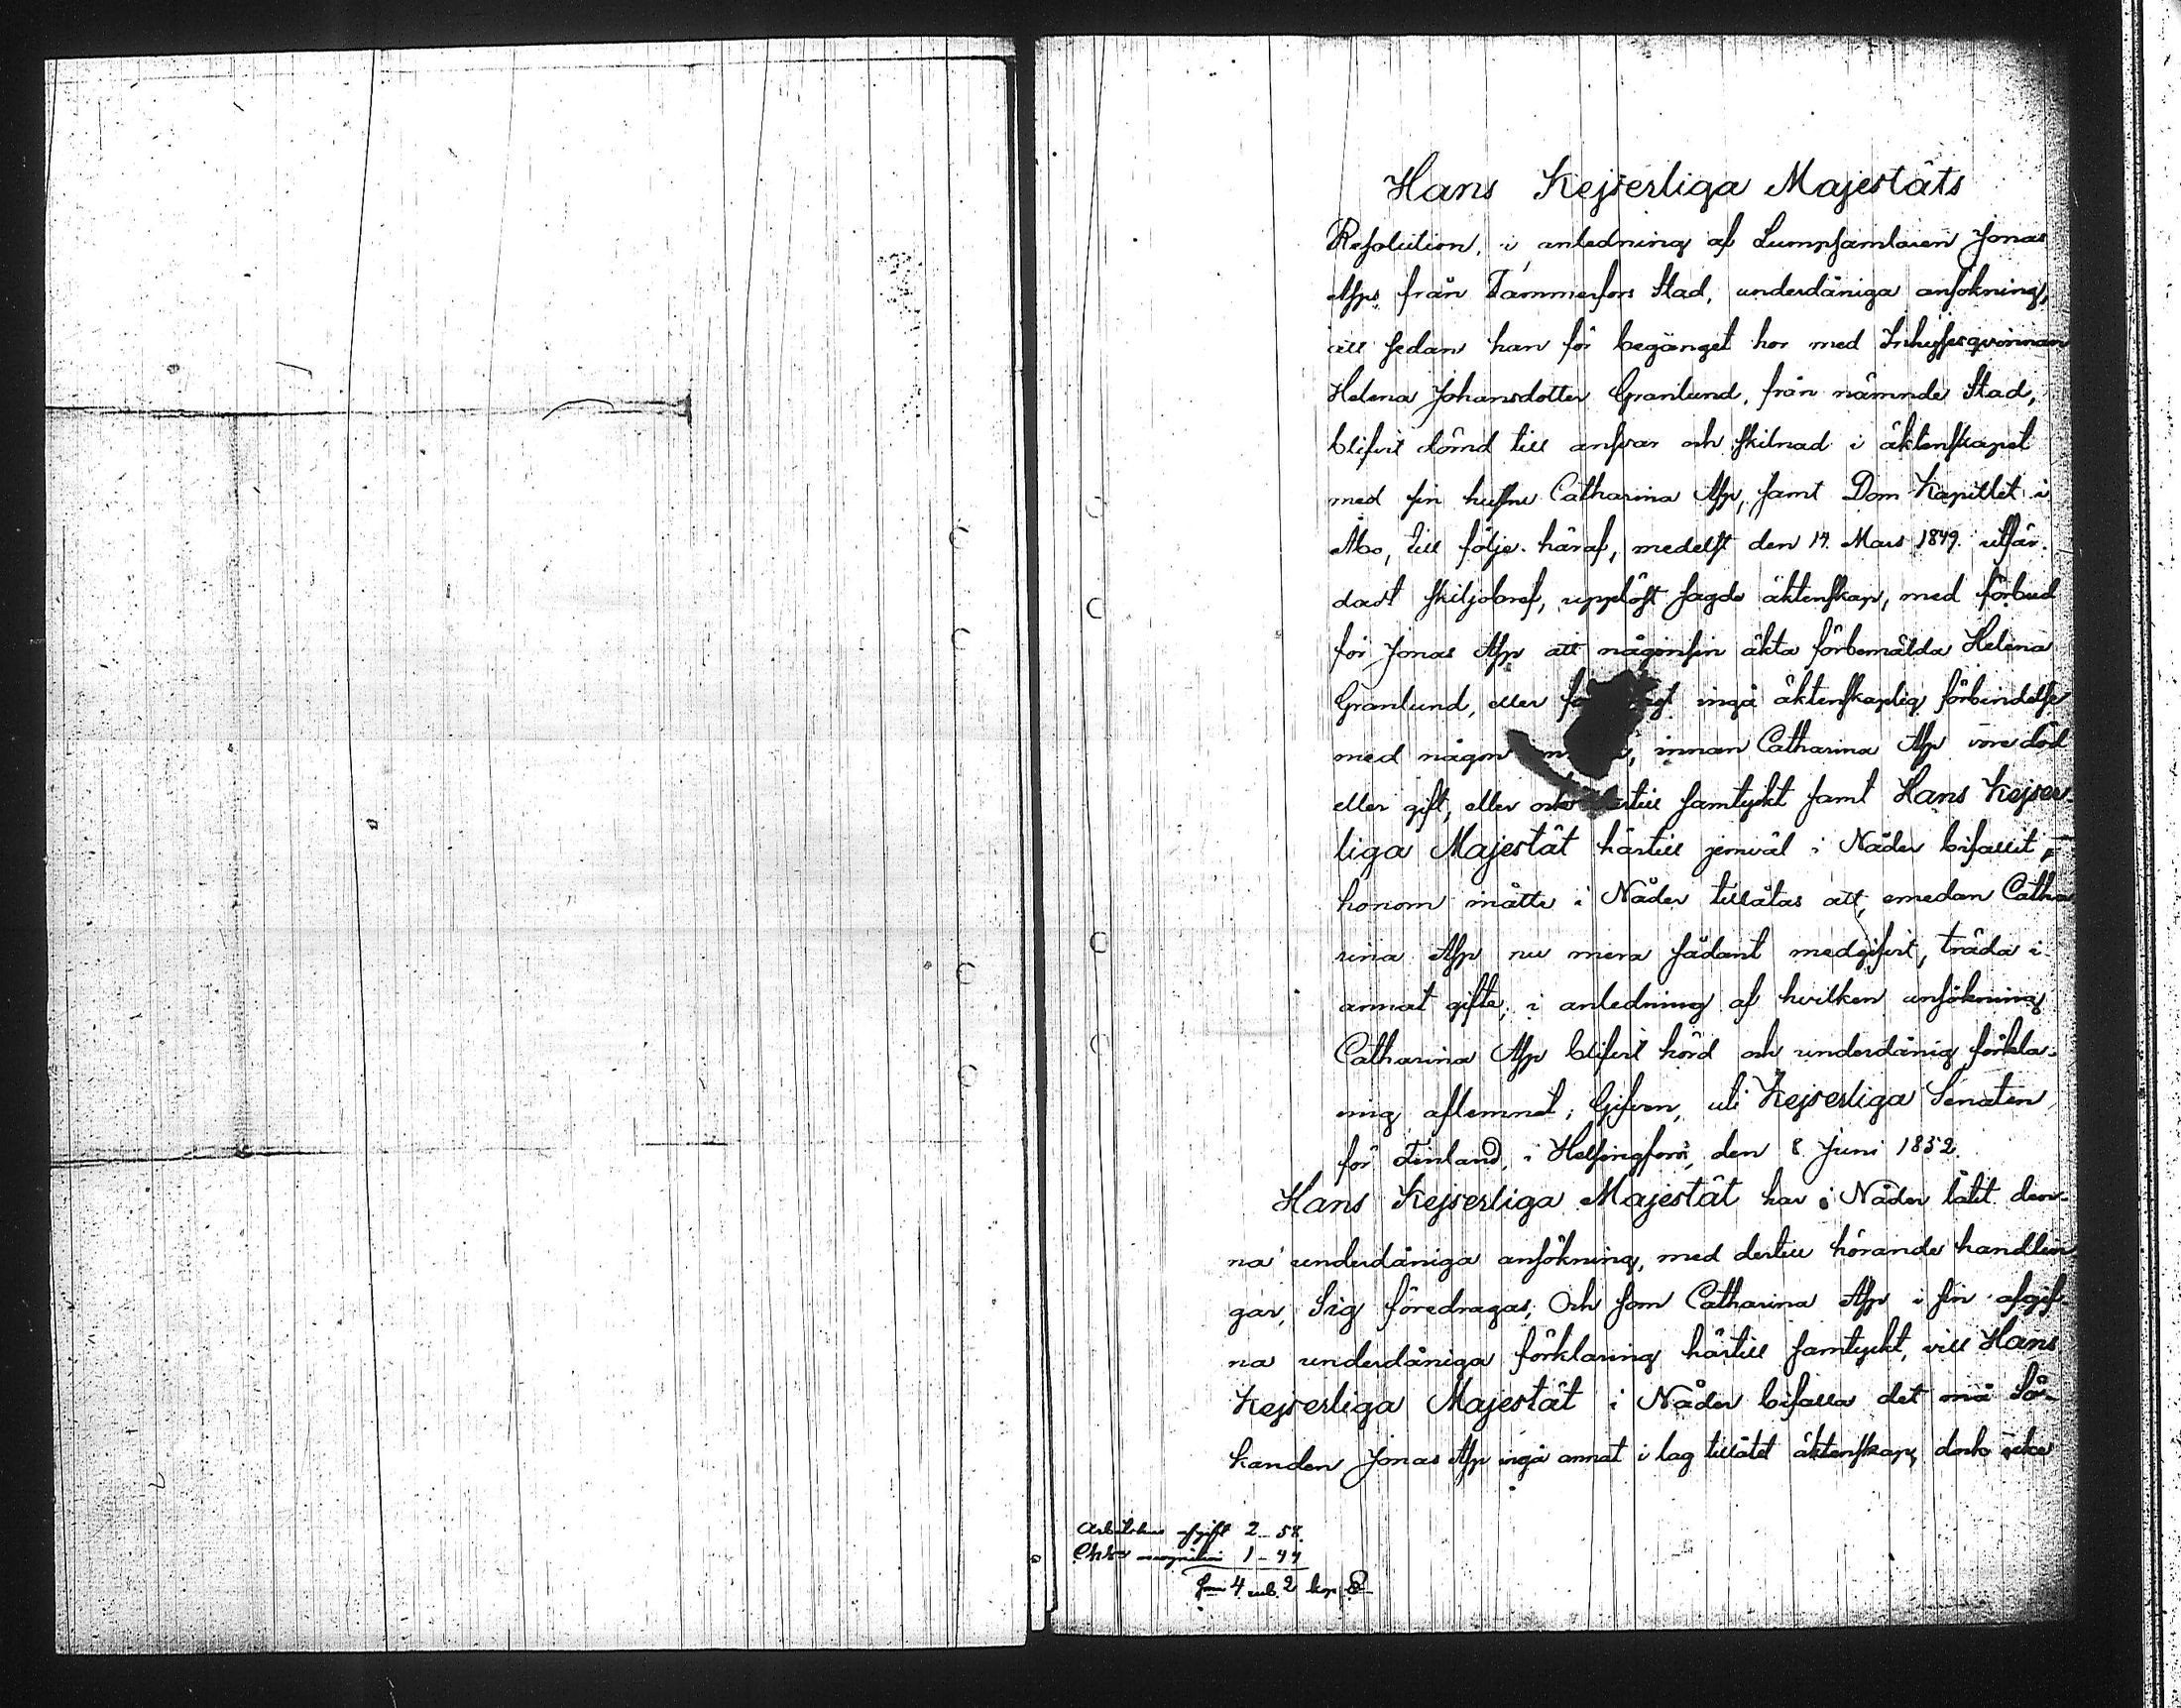 Hans Kejserliga Majestäts
Resolution, i anledning af Lumpsamlaren Jonas
Asps från Tammerfors Stad, underdåniga ansökning,
att sedan han för begånget hor med Inhysesqvinnan
Helena Johansdotter Granlund, från nämnde Stad,
blifvit dömd till ansvar och skilnad i äktenskapet
med sin hustru Catharina Asp, samt Dom Kapitlet i
Åbo, till följe häraf, medelst den 14 Mars 1849 utfär-
dadt skiljobref, upplöst sagde äktenskap, med förbud
för Jonas Asp att någonsin äkta förbemälda Helena
Granlund, eller ingå äktenskaplig förbindelse
med någon innan Catharina Asp vore död
eller gift, eller ock dertill samtyckt samt Hans Kejser-
liga Majestät härtill jemväl i Nåder bifallit,
honom måtte i Nåder tillåtas att, emedan Catha
rina Asp nu mera sådant medgifvit, träda i
annat gifte; i anledning af hvilken ansökning
Catharina Asp blifvit hörd och underdånig förkla-
ring aflemnat; Gifven, uti Kejserliga Senaten
för Finland, i Helsingfors, den 8 Juni 1852.
Hans Kejserliga Majestät har i Nåder låtit den-
na underdåniga ansökning, med dertill hörande handlin
gar, Sig föredragas; Och som Catharina Asp i sin afgif-
na underdåniga förklaring härtill samtyckt, vill Hans
Kejserliga Majestät i Nåder bifalla det må Sö-
kanden Jonas Asp ingå annat i lag tillåtet äktenskap, dock icke
Arbetshus afgift 2 - 58.
Chtæ recognition 1 - 44
S:ma 4 rub. 2 kop. S.